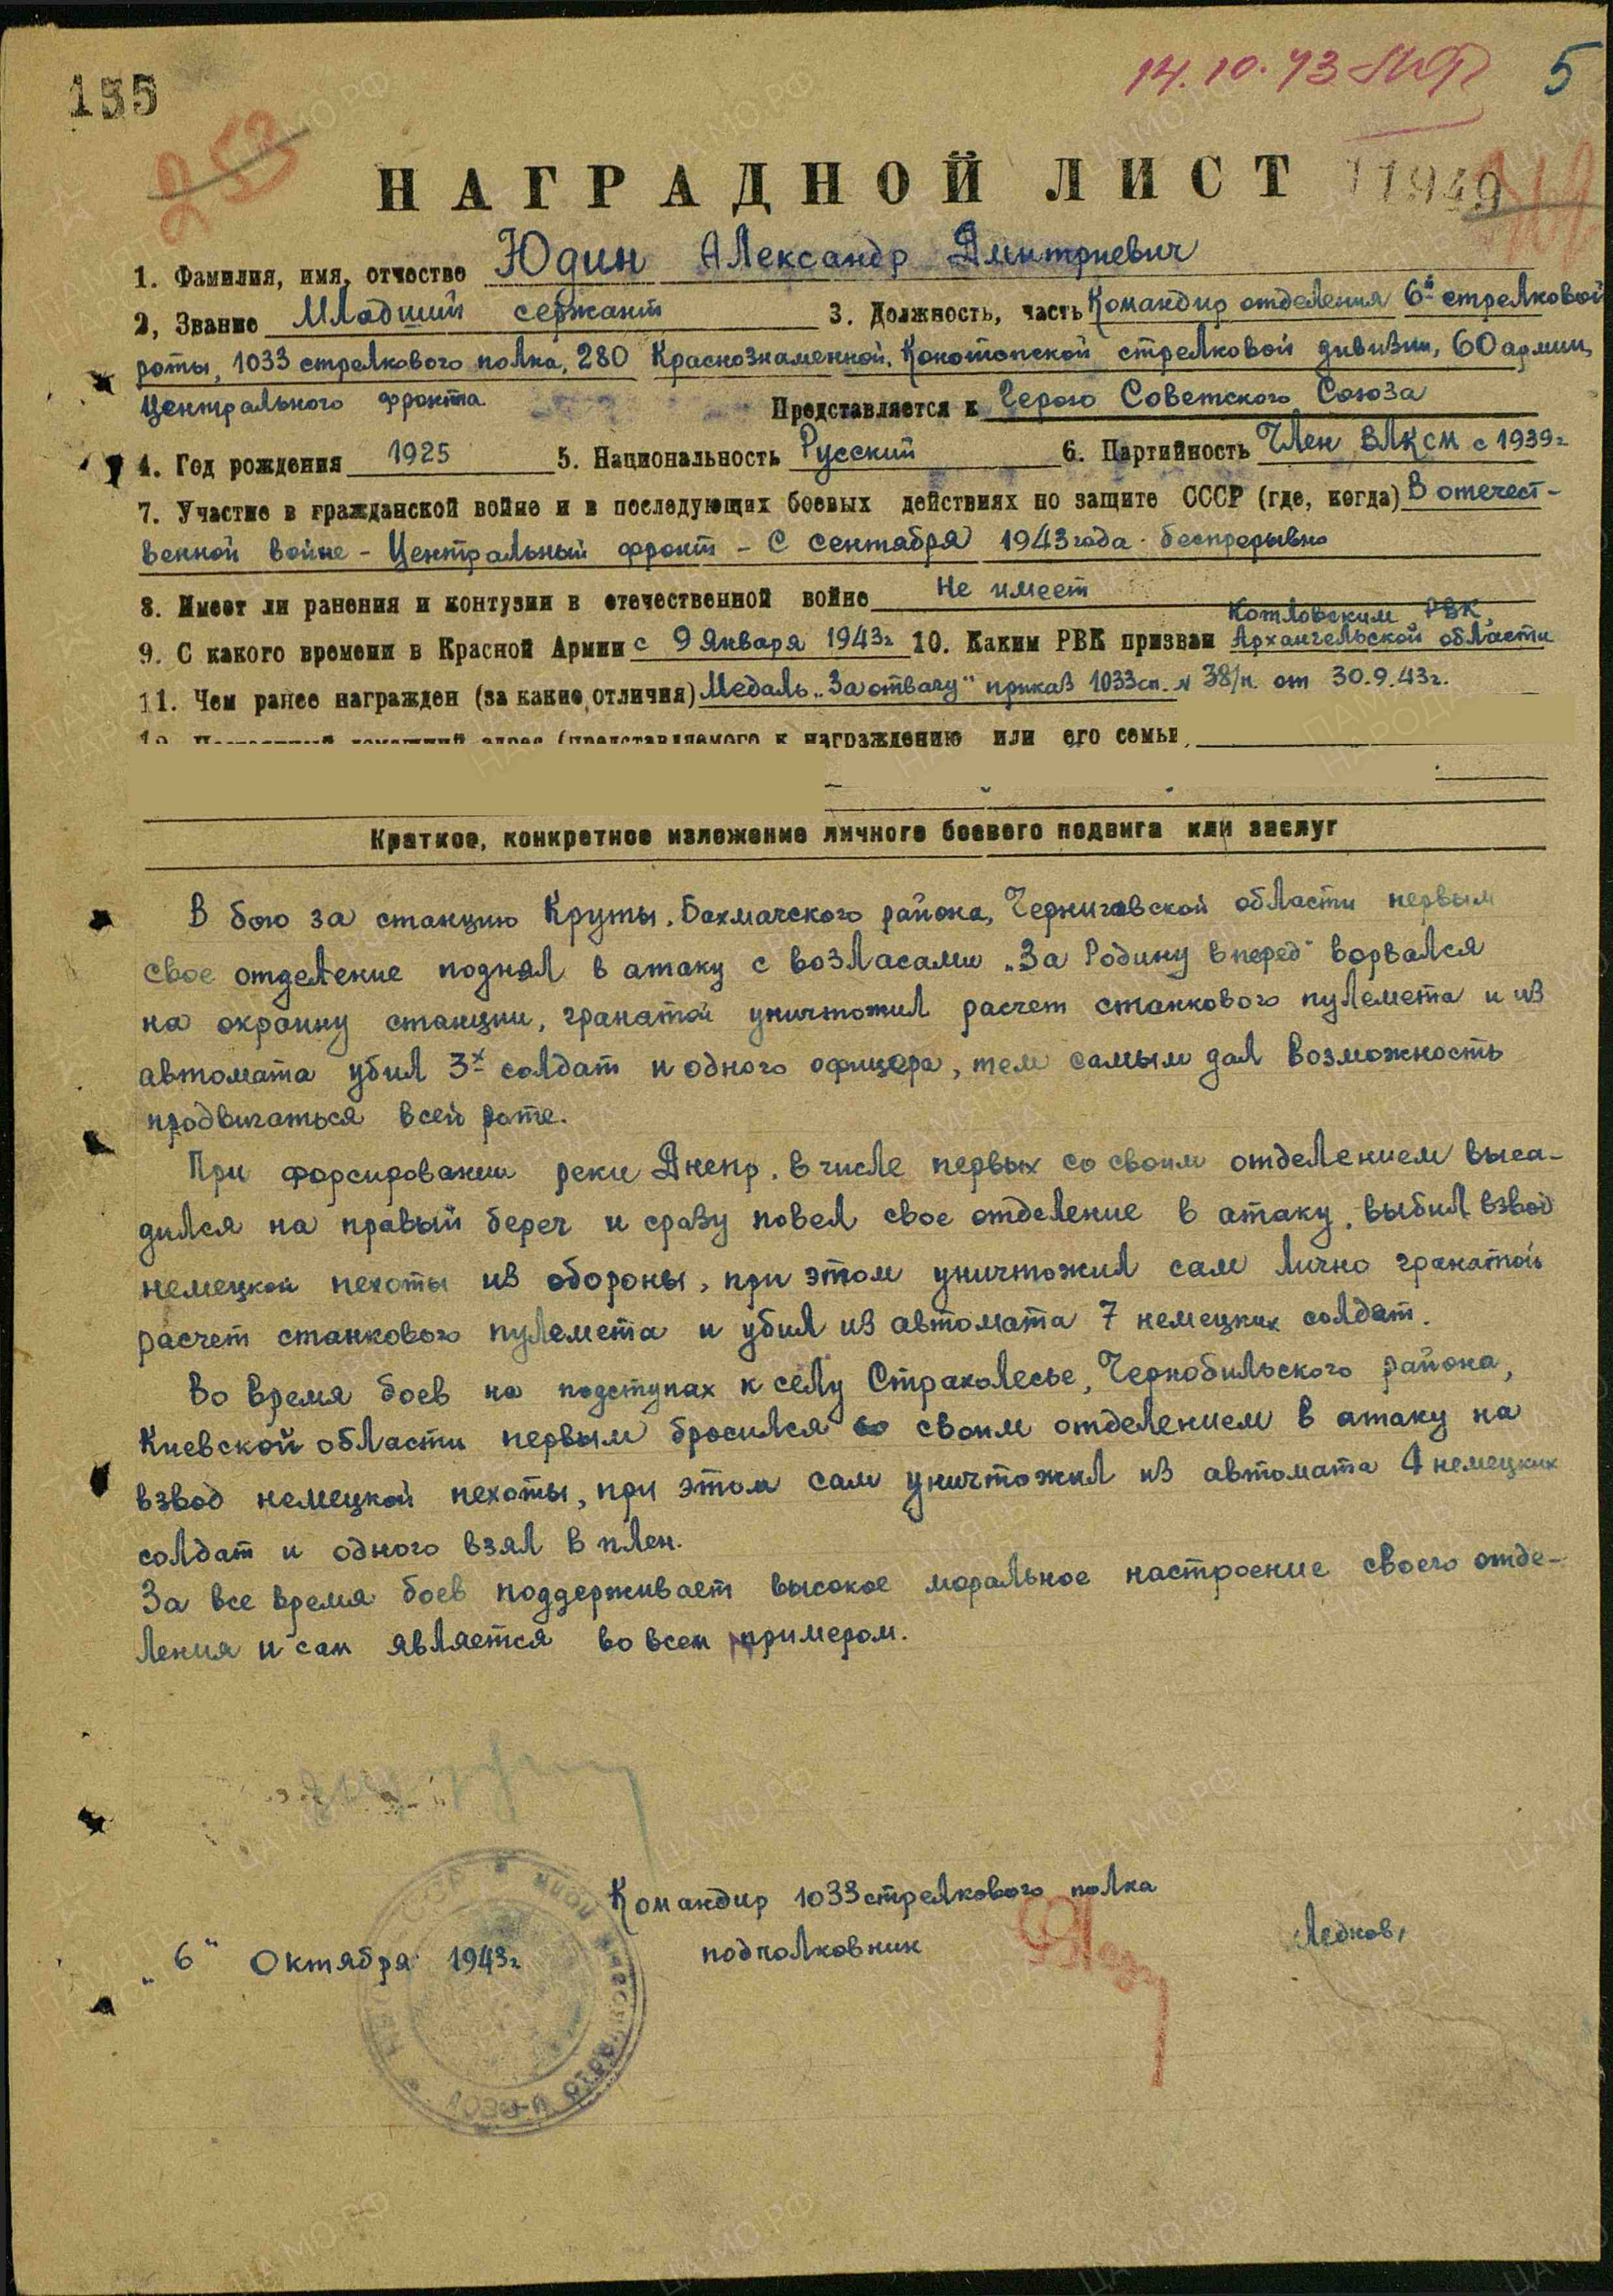 155
14.10.43
5
253
НАГРАДНОЙ ЛИСТ
11949
1. Фамилия, имя, отчество Юдин Александр Дмитриевич
2. Звание Младший сержант 3. Должность, часть Командир отделения 6й стрелковой
роты, 1033 стрелкового полка, 280 Краснознаменной, Конотопской стрелковой дивизии, 60 армии,
Центрального фронта
Представляется к Герою Советского Союза
4. Год рождения 1925 5. Национальность Русский 6. Партийность Член ВЛКСМ с 1939г
7. Участие в гражданской войне и в последующих боевых действиях по защите СССР (где, когда) В отечест-
венной войне – Центральный фронт – С сентября 1943 года беспрерывно
8. Имеет ли ранения и контузии в отечественной войне Не имеет
9. С какого времени в Красной Армии с 9 Января 1943г 10. Каким РВК призван Котловским РВК,
Архангельской области
11. Чем ранее награжден (за какие отличия) Медаль „За отвагу" приказ 1033сп. N 38/н. от 30.9.43г.
12. Постоянный домашний адрес (представляемого к награждению или его семьи
Краткое, конкретное изложение личного боевого подвига или заслуг
В бою за станцию Круты, Бахмачского района, Черниговской области первым
свое отделение поднял в атаку с возгласами „За Родину вперед" ворвался
на окраину станции, гранатой уничтожил расчет станкового пулемета и из
автомата убил 3х солдат и одного офицера, тем самым дал возможность
продвигаться всей роте.
При форсировании реки Днепр, в числе первых со своим отделением выса-
дился на правый берег и сразу повел свое отделение в атаку, выбил взвод
немецкой пехоты из обороны, при этом уничтожил сам лично гранатой
расчет станкового пулемета и убил из автомата 7 немецких солдат.
Во время боев на подступах к селу Страхолесье, Чернобильского района,
Киевской области первым бросился со своим отделением в атаку на
взвод немецкой пехоты, при этом сам уничтожил из автомата 4 немецких
солдат и одного взял в плен.
За все время боев поддерживает высокое моральное настроение своего отде-
ления и сам является во всем примером.
Командир 1033 стрелкового полка
подполковник Ледков,
„6" Октября 1943г